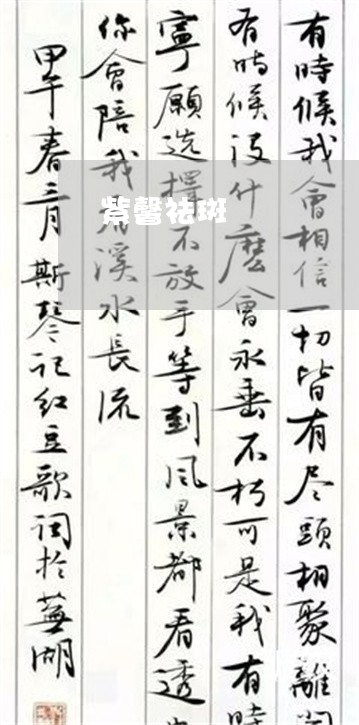 有時候我會相信一切皆有尽頭相聚離開
有時候没什麽會永垂不朽可是我有時
寧願选擇不放手等到風景都看透
你會陪我看溪水長流
甲午春三月斯琴记红豆歌詞於蕪湖
紫馨祛斑